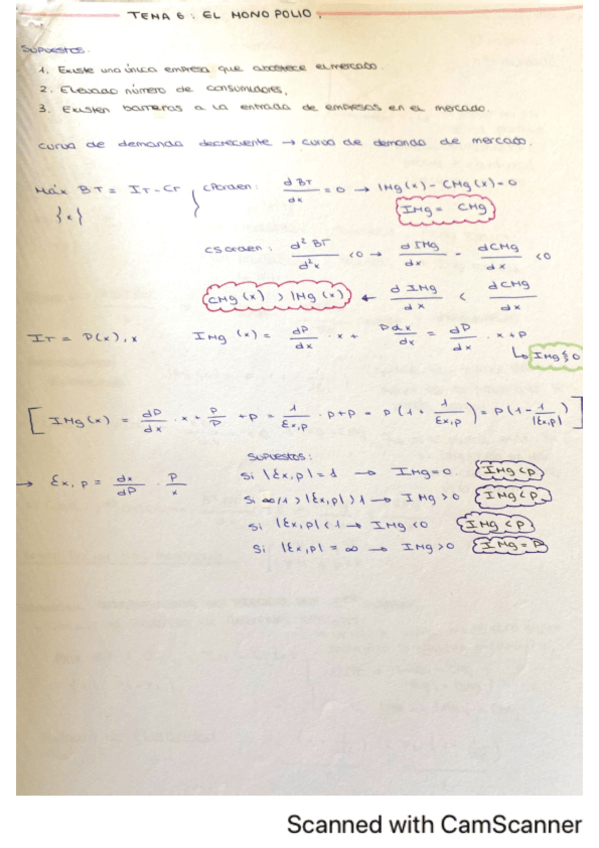 TEMA 6: EL MONOPOLIO.
SUPUESTOS.
1. Existe una única empresa que abastece el mercado.
2. Elevado número de consumidores.
3. Existen barreras a la entrada de empresas en el mercado.
curva de demanda decreciente → curva de demanda de mercado.
Máx BT = IT - CT } CPorden: dBT/dx = 0 → IMg(x) - CMg(x) = 0
{x} IMg = CMg
CSorden: d² BT/d²x < 0 → dIMg/dx - dCMg/dx < 0
CMg(x) > IMg(x) ← dIMg/dx < dCMg/dx
IT = P(x).x IMg(x) = dP/dx · x + Pdx/dx = dP/dx · x + P
↳ IMg ≷ 0
[IMg(x) = dP/dx · x · P/P + P = 1/Ex,p · P + P = P(1 + 1/Ex,p) = P(1 - 1/|Ex,p|)]
SUPUESTOS:
→ Ex,p = dx/dP · P/x Si |Ex,p| = 1 → IMg = 0. IMg < P
Si ∞ > |Ex,p| > 1 → IMg > 0 IMg < P
Si |Ex,p| < 1 → IMg < 0 IMg < P
Si |Ex,p| = ∞ → IMg > 0 IMg = P
Scanned with CamScanner